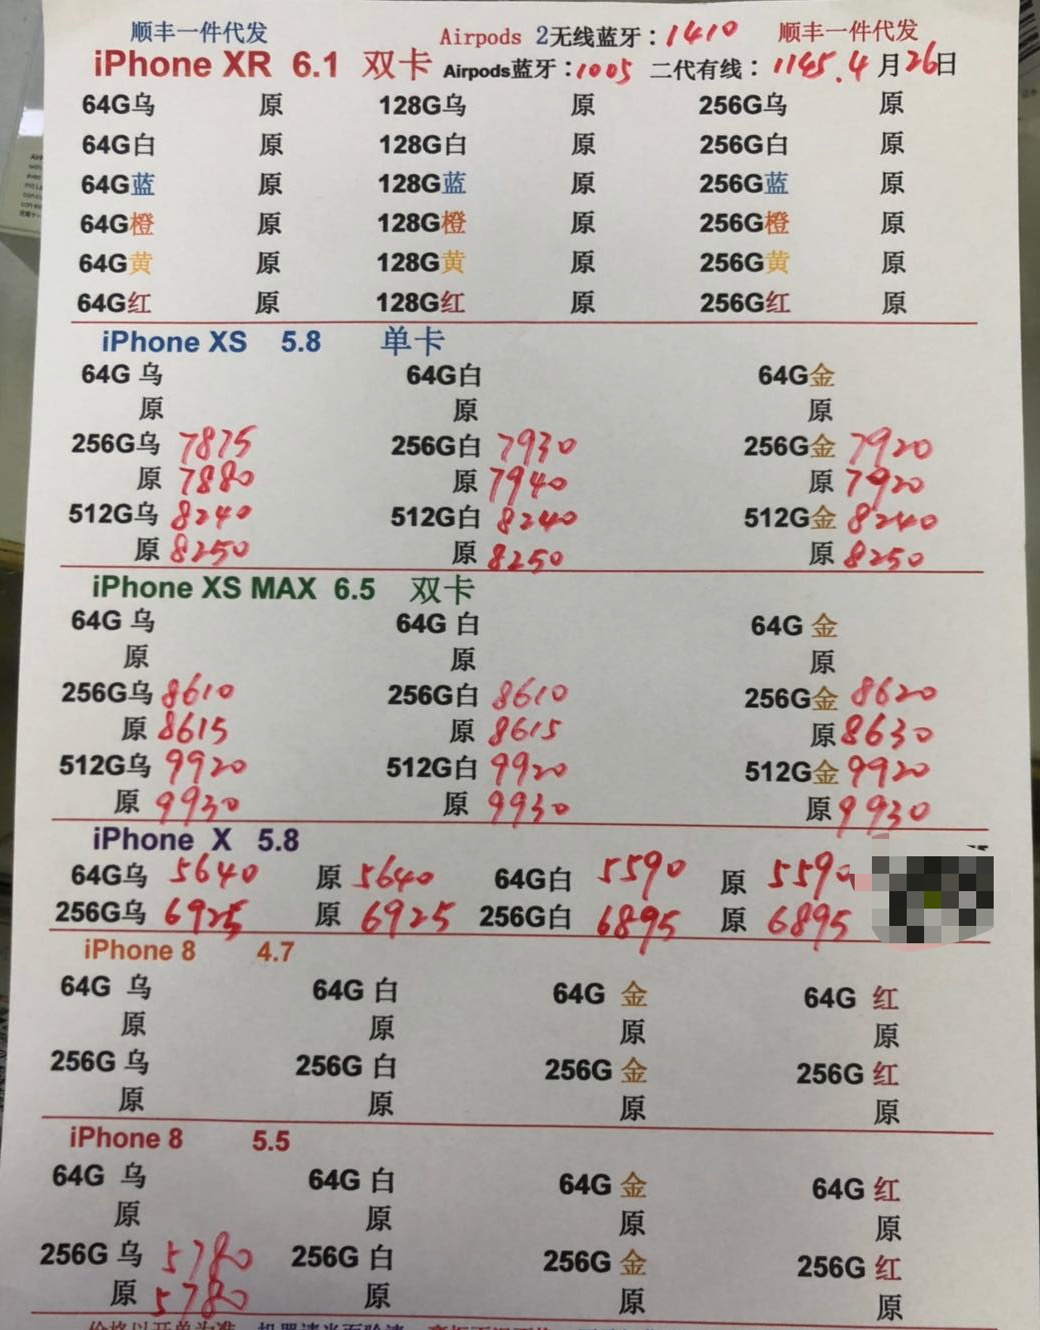 顺丰一件代发 Airpods 2无线蓝牙：1410 顺丰一件代发
iPhone XR 6.1 双卡 Airpods蓝牙：1005 二代有线：1145.4月26日
64G乌 原 128G乌 原 256G乌 原
64G白 原 128G白 原 256G白 原
64G蓝 原 128G蓝 原 256G蓝 原
64G橙 原 128G橙 原 256G橙 原
64G黄 原 128G黄 原 256G黄 原
64G红 原 128G红 原 256G红 原
iPhone XS 5.8 单卡
64G 乌 64G白 64G金
原 原 原
256G乌 7875 256G白 7930 256G金 7920
原 7880 原 7940 原 7920
512G乌 8240 512G白 8240 512G金 8240
原 8250 原 8250 原 8250
iPhone XS MAX 6.5 双卡
64G 乌 64G 白 64G 金
原 原 原
256G乌 8610 256G白 8610 256G金 8620
原 8615 原 8615 原 8630
512G乌 9920 512G白 9920 512G金 9920
原 9930 原 9930 原 9930
iPhone X 5.8
64G乌 5640 原 5640 64G白 5590 原 5590
256G乌 6925 原 6925 256G白 6895 原 6895
iPhone 8 4.7
64G 乌 64G 白 64G 金 64G 红
原 原 原 原
256G 乌 256G 白 256G 金 256G 红
原 原 原 原
iPhone 8 5.5
64G 乌 64G 白 64G 金 64G 红
原 原 原 原
256G 乌 5780 256G 白 256G 金 256G 红
原 5780 原 原 原